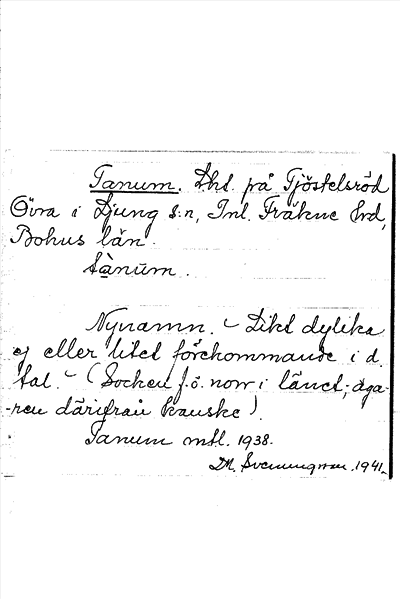 Tanum. Lht. på Tjöstelsröd
Övra i Ljung s:n, Inl. Fräkne hrd,
Bohus län.
tànum.
Nynamn. – Likt dylika
ej eller litet förekommande i d.
tal. – (Socken f. ö. norr i länet; äga-
-ren därifrån kanske).
Tanum mtl. 1938.
D.M. Svenungsson. 1941.